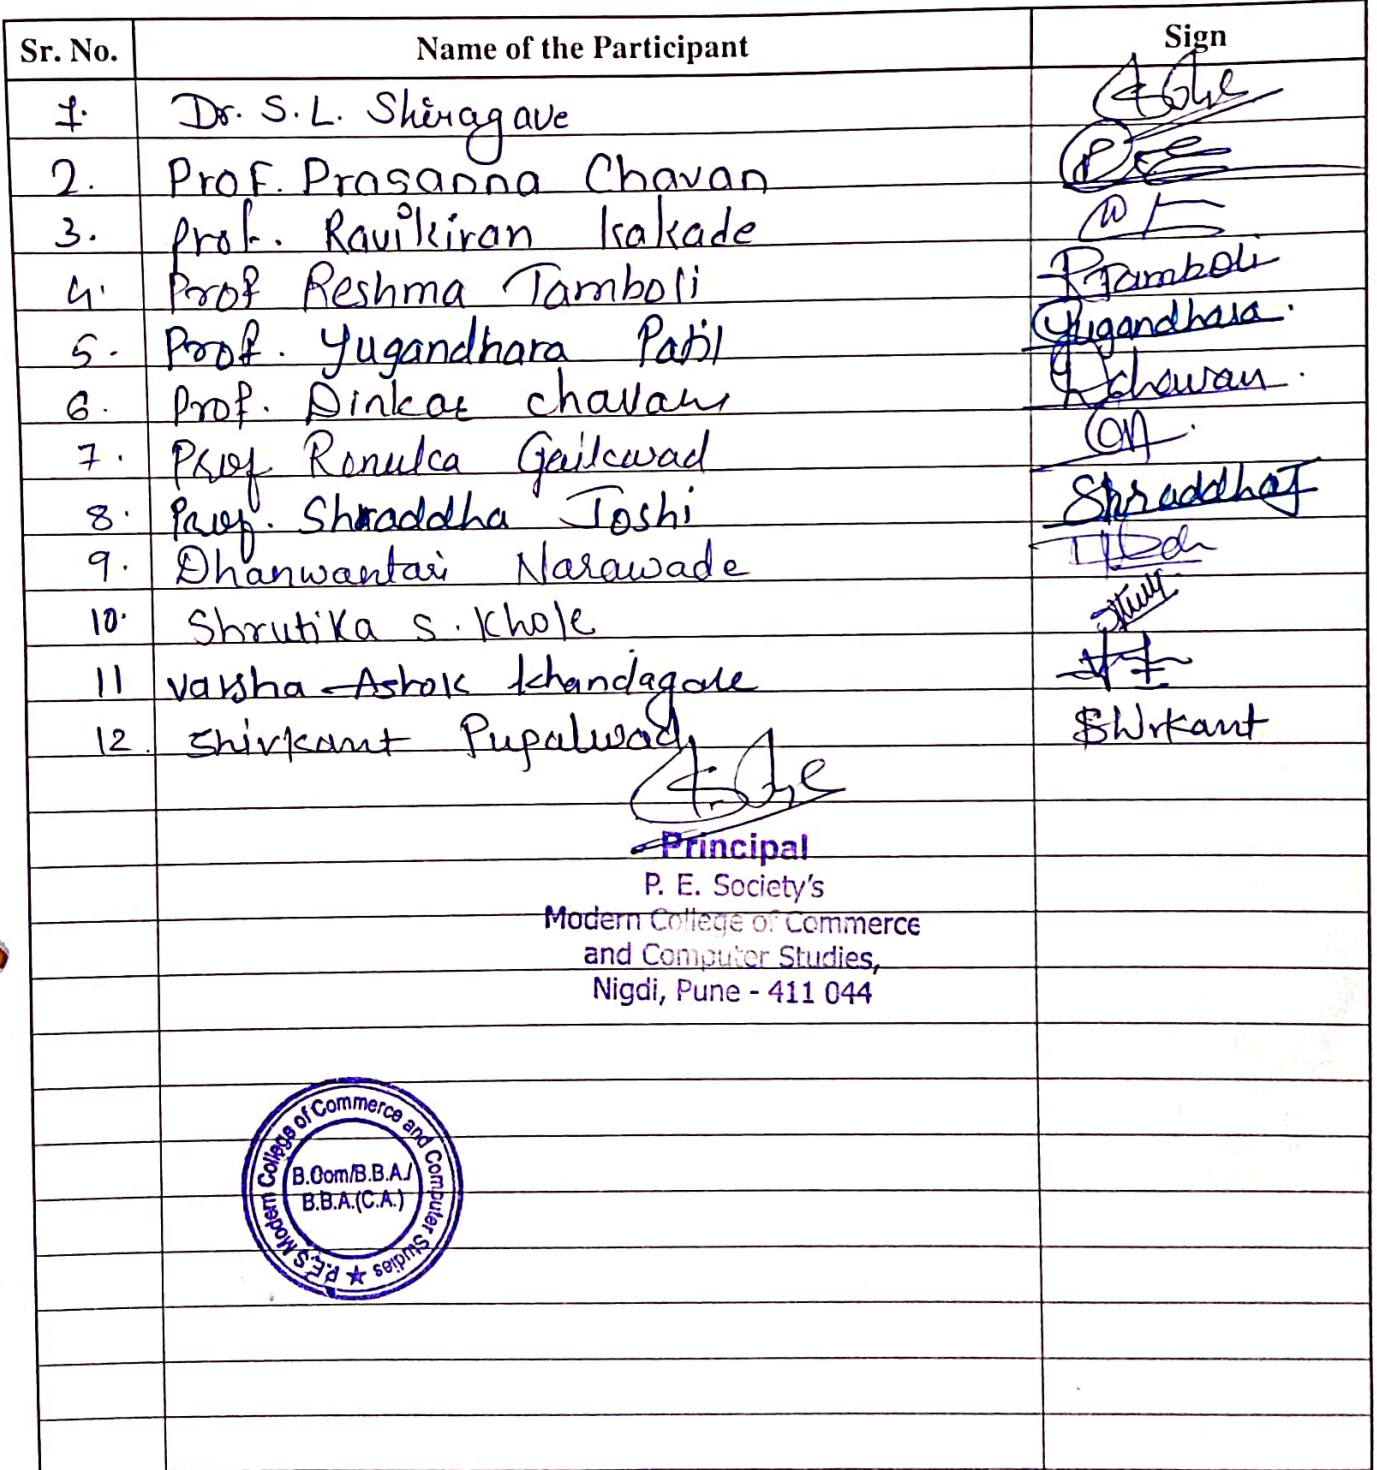 Sr. No. Name of the Participant Sign
1. Dr. S. L. Shiragave
2. Prof. Prasanna Chavan
3. Prof. Ravikiran Kakade
4. Prof Reshma Tamboli RTamboli
5. Prof. Yugandhara Patil Yugandhara.
6. Prof. Dinkar Chavan Dchavan.
7. Prof Renuka Gaikwad
8. Prof. Shraddha Joshi ShraddhaJ
9. Dhanwantari Narawade
10. Shrutika S. Khole
11 Varsha Ashok Khandagale
12. Shivkant Pupalwad Shivkant
Principal
P. E. Society's
Modern College of Commerce
and Computer Studies,
Nigdi, Pune - 411 044
P.E.S Modern College of Commerce and Computer Studies ★
B.Com/B.B.A./
B.B.A.(C.A.)